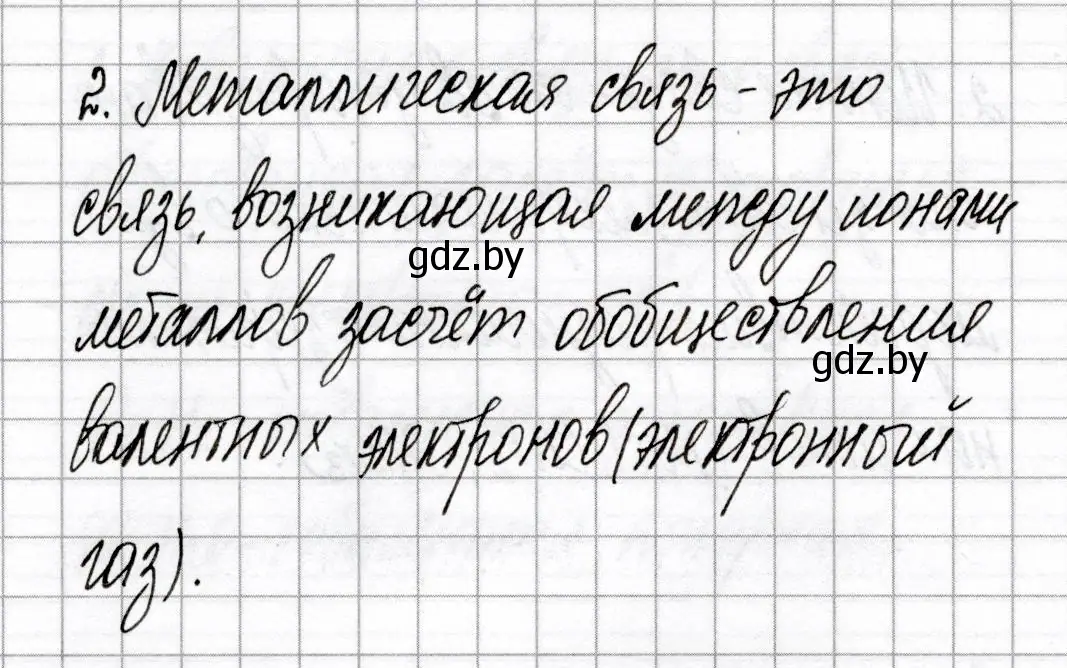 2. Металлическая связь - это
связь, возникающая между ионами
gdz.by
металлов засчёт обобществления
gdz.by
валентных электронов (электронный
газ).